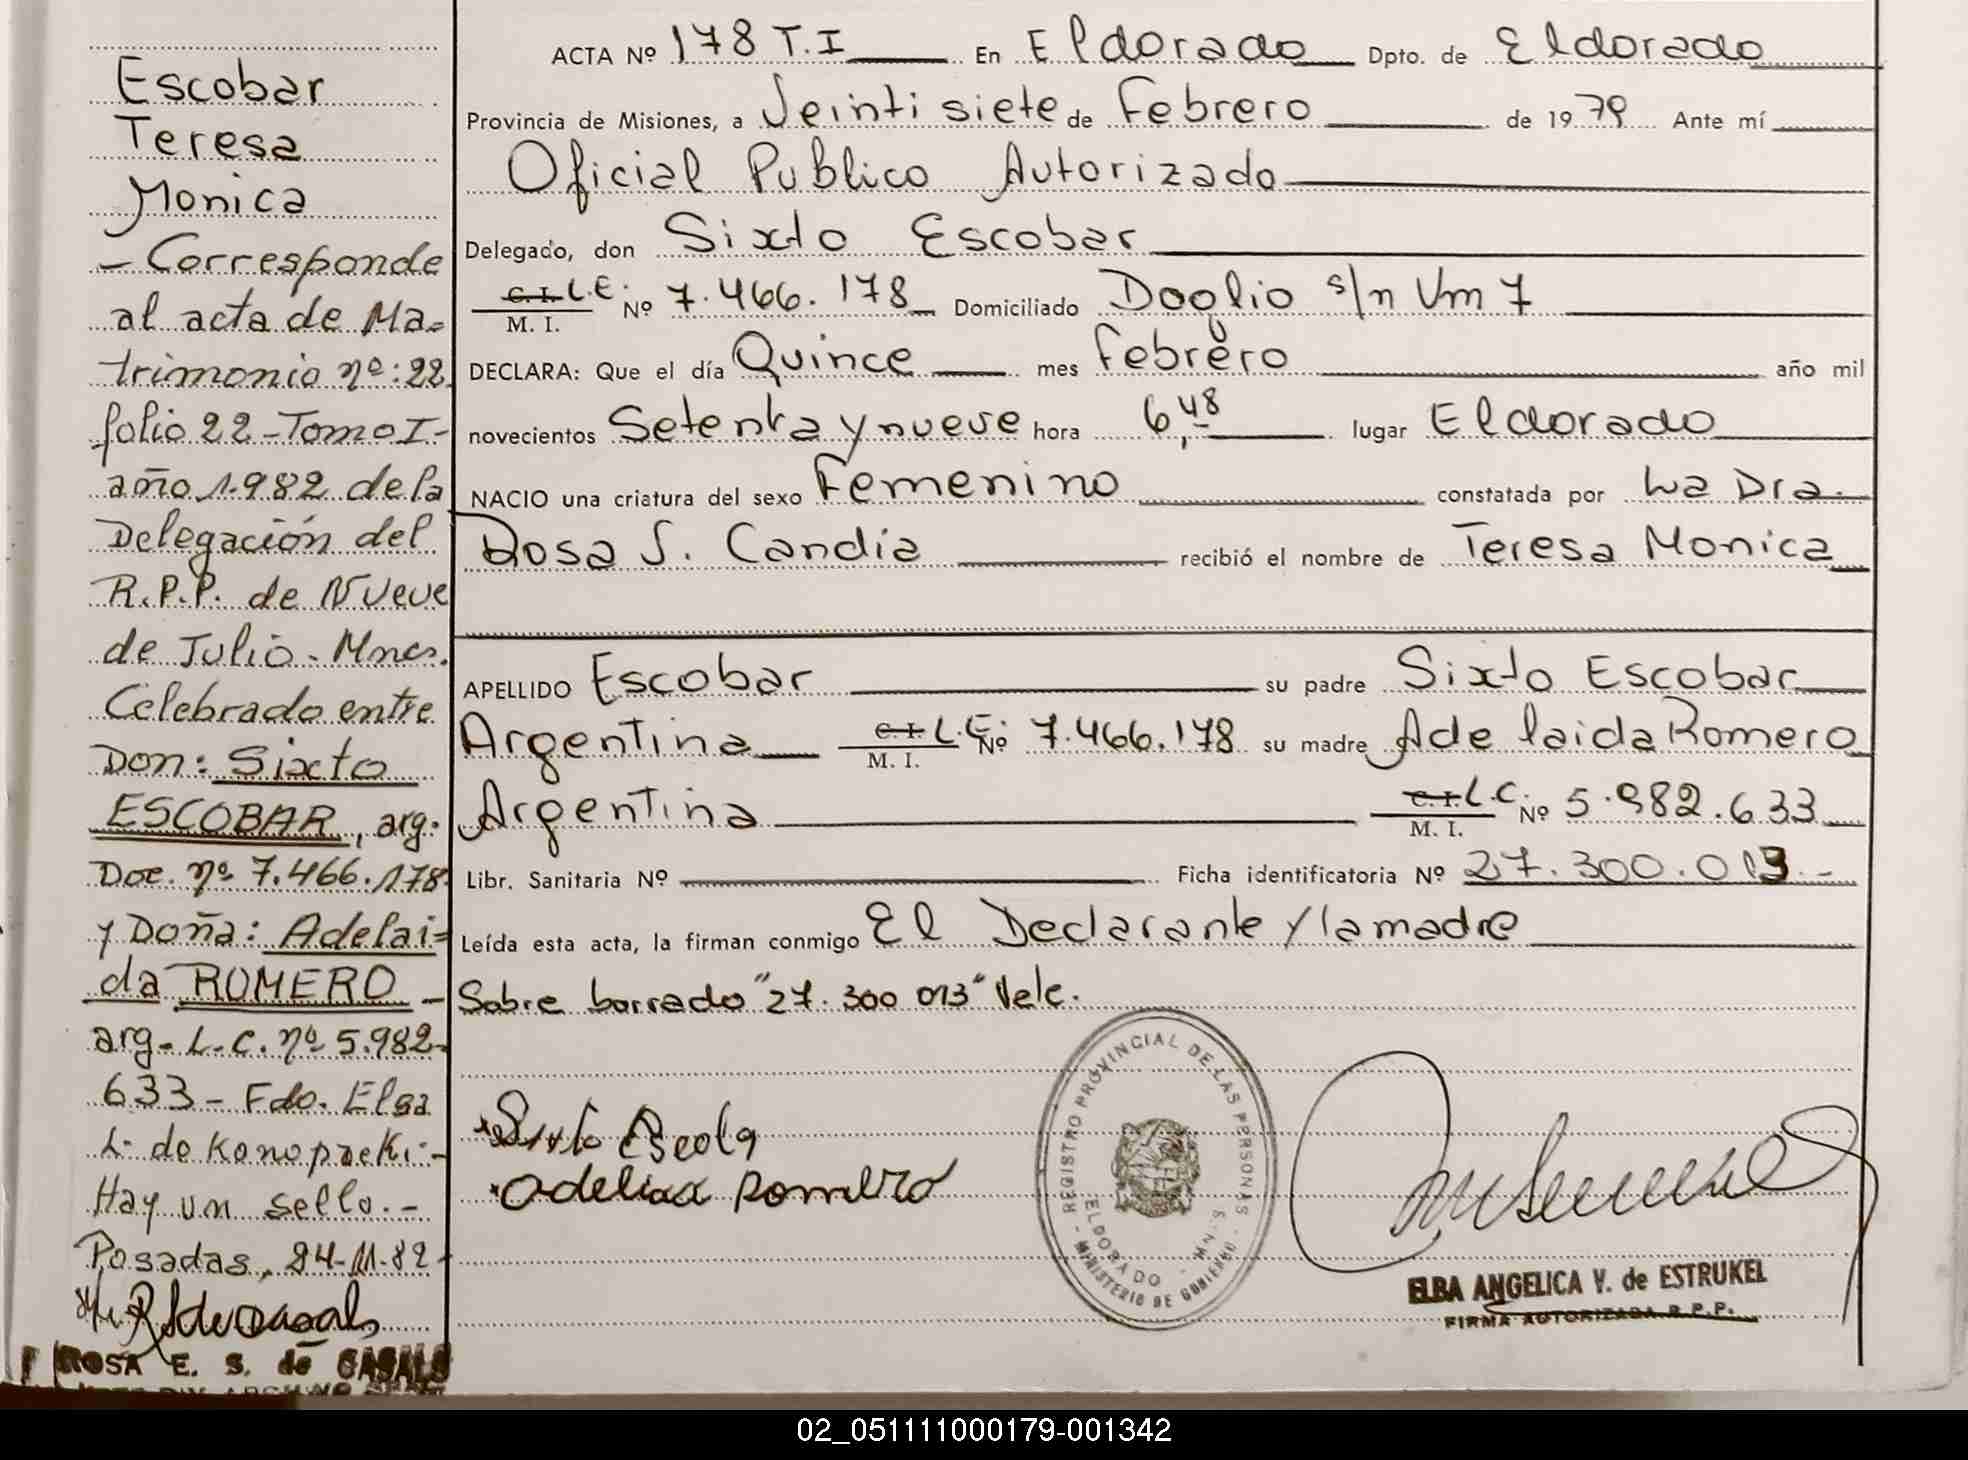 Escobar
Teresa
Monica
- Corresponde
al acta de Ma=
trimonio nº: 22
folio 22 - Tomo I -
año 1.982 de la
Delegación del
R.P.P. de Nueve
de Julio - Mnes.
Celebrado entre
Don: Sixto
ESCOBAR, arg.
Doc. nº 7.466.178
y Doña: Adelai=
da ROMERO -
arg - L.C. nº 5.982-
633 - Fdo. Elsa
L. de Konopacki -
Hay un sello. -
Posadas, 24-11-82
ROSA E. S. de CASALS
ACTA Nº 178 T.I En Eldorado Dpto. de Eldorado
Provincia de Misiones, a Veinti siete de Febrero de 1979 Ante mí
Oficial Publico Autorizado
Delegado, don Sixto Escobar
C.I. L.E. Nº 7.466.178 Domiciliado s/n Km 7
M. I.
DECLARA: Que el día Quince mes Febrero año mil
novecientos Setenta y nueve hora 6,48 lugar Eldorado
NACIO una criatura del sexo Femenino constatada por La Dra.
Rosa S. Candia recibió el nombre de Teresa Monica
APELLIDO Escobar su padre Sixto Escobar
Argentina C.I. L.E. Nº 7.466.178 su madre Adelaida Romero
M. I.
Argentina C.I. L.C. Nº 5.982.633
M. I.
Libr. Sanitaria Nº Ficha identificatoria Nº 27.300.013.-
Leída esta acta, la firman conmigo El Declarante y la madre
Sobre borrado "27.300 013" Vale.
REGISTRO PROVINCIAL DE LAS PERSONAS
ELDORADO - MNES.
MINISTERIO DE GOBIERNO
ELBA ANGELICA V. de ESTRUKEL
FIRMA AUTORIZADA R.P.P.
02_051111000179-001342